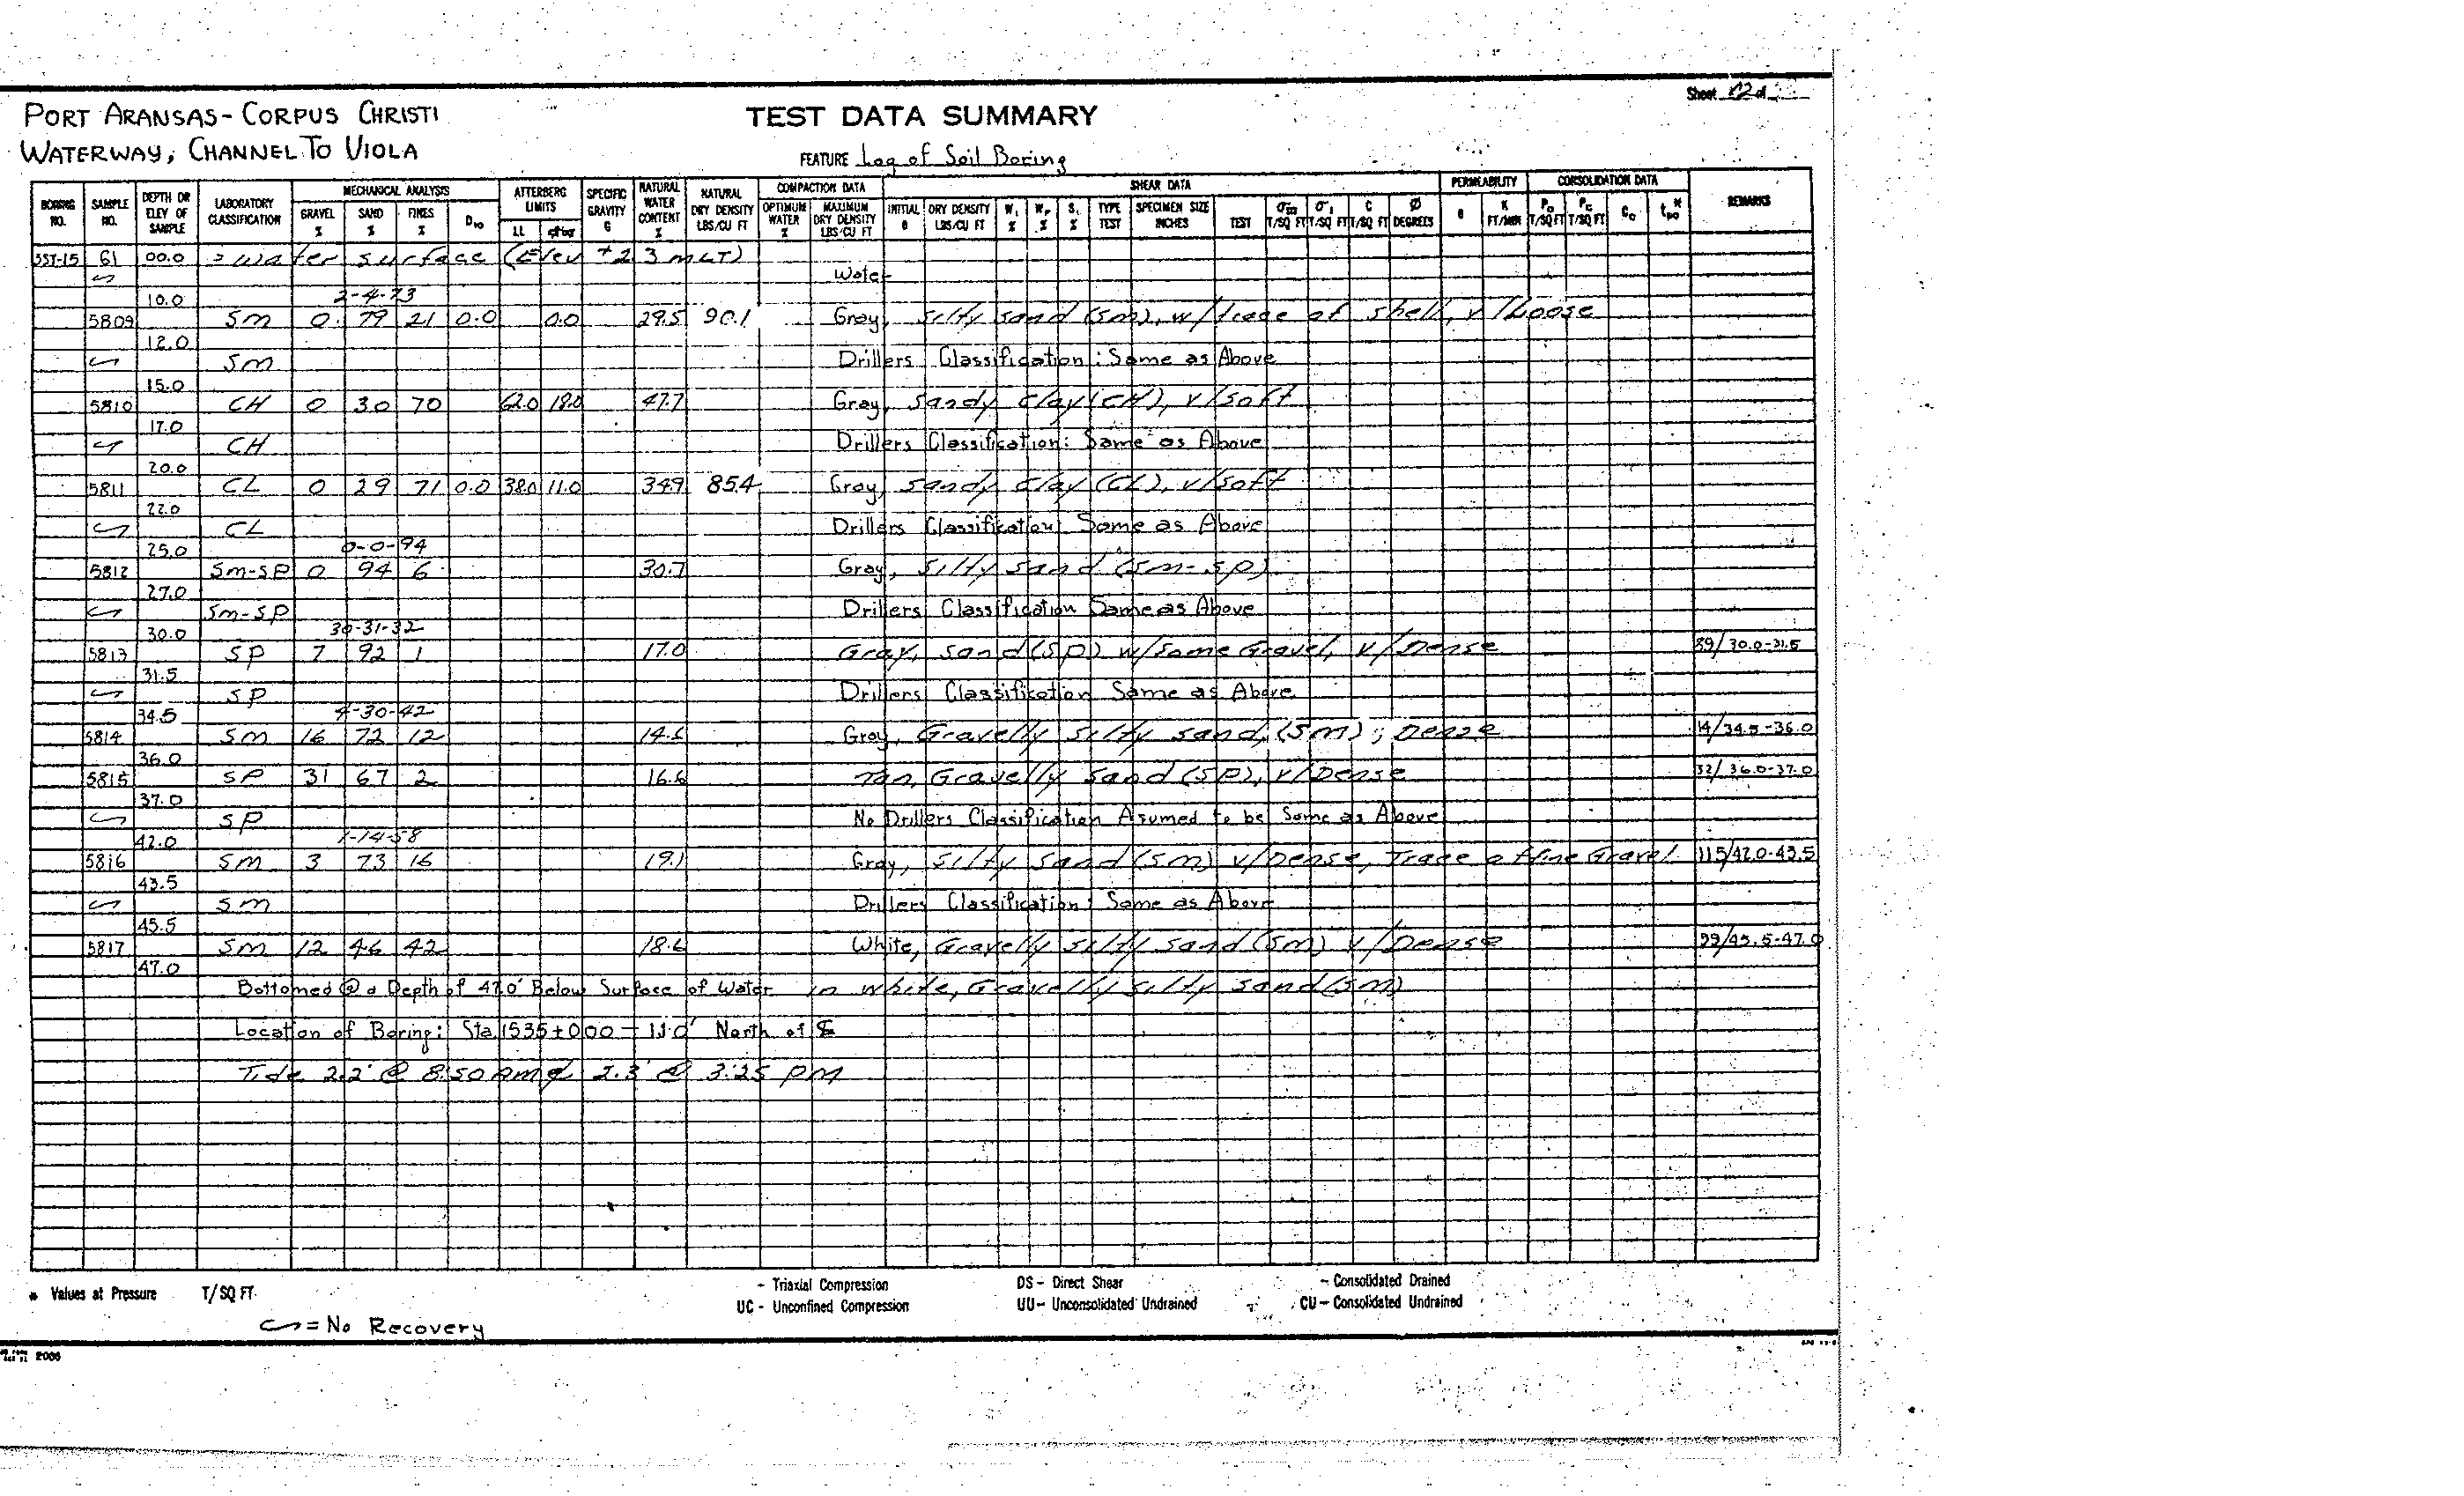 Sheet 12 of
PORT ARANSAS - CORPUS CHRISTI
WATERWAY, CHANNEL TO VIOLA
TEST DATA SUMMARY
FEATURE Log of Soil Boring
BORING NO. SAMPLE NO. DEPTH OR ELEV OF SAMPLE LABORATORY CLASSIFICATION MECHANICAL ANALYSIS GRAVEL % SAND % FINES % D10 ATTERBERG LIMITS LL SPECIFIC GRAVITY G NATURAL WATER CONTENT % NATURAL DRY DENSITY LBS/CU FT COMPACTION DATA OPTIMUM WATER % MAXIMUM DRY DENSITY LBS/CU FT SHEAR DATA INITIAL e DRY DENSITY LBS/CU FT W. % W. % S. % TYPE TEST SPECIMEN SIZE INCHES TEST T/SQ FT σ1 T/SQ FT C T/SQ FT Ø DEGREES PERMEABILITY e K FT/MIN CONSOLIDATION DATA Po T/SQ FT Pc T/SQ FT Cc REMARKS
3ST-15 61 00.0 = water surface (Elev +2.3 MLT)
Water
10.0 2-4-73
5809 SM 0 79 21 0.0 0.0 29.5 90.1 Gray, silty sand (SM), w/trace of shell, v/Loose
12.0
SM Drillers Classification: Same as Above
15.0
5810 CH 0 30 70 62.0 18.0 47.7 Gray, sandy clay (CH), v/soft
17.0
CH Drillers Classification: Same as Above
20.0
5811 CL 0 29 71 0.0 38.0 11.0 34.9 85.4 Gray, sandy clay (CL), v/soft
22.0
CL Drillers Classification Same as Above
25.0 0-0-94
5812 SM-SP 0 94 6 30.7 Gray, silty sand (SM-SP)
27.0
SM-SP Drillers Classification Same as Above
30.0 30-31-32
5813 SP 7 92 1 17.0 Gray, sand (SP) w/some Gravel, v/Dense 89/30.0-31.5
31.5
SP Drillers Classification Same as Above
34.5 4-30-42
5814 SM 16 72 12 14.6 Gray, Gravelly silty sand, (SM); Dense 14/34.5-36.0
36.0
5815 SP 31 67 2 16.6 Tan, Gravelly Sand (SP), v/Dense 32/36.0-37.0
37.0
SP No Drillers Classification Asumed to be Same as Above
42.0 1-14-58
5816 SM 3 73 16 19.1 Gray, silty sand (SM) v/Dense, Trace of fine Gravel 115/42.0-43.5
43.5
SM Drillers Classification: Same as Above
45.5
5817 SM 12 46 42 18.6 White, Gravelly silty sand (SM) v/Dense 99/45.5-47.0
47.0
Bottomed @ a Depth of 47.0' Below Surface of Water in white, Gravelly silty sand (SM)
Location of Boring: Sta. 1535+000 - 110' North of ℄
Tide 2.2' @ 8:50 AM & 2.3' @ 3:25 PM
* Values at Pressure T/SQ FT.
- Triaxial Compression
DS - Direct Shear
- Consolidated Drained
UC - Unconfined Compression
UU - Unconsolidated Undrained
CU - Consolidated Undrained
= No Recovery
2006